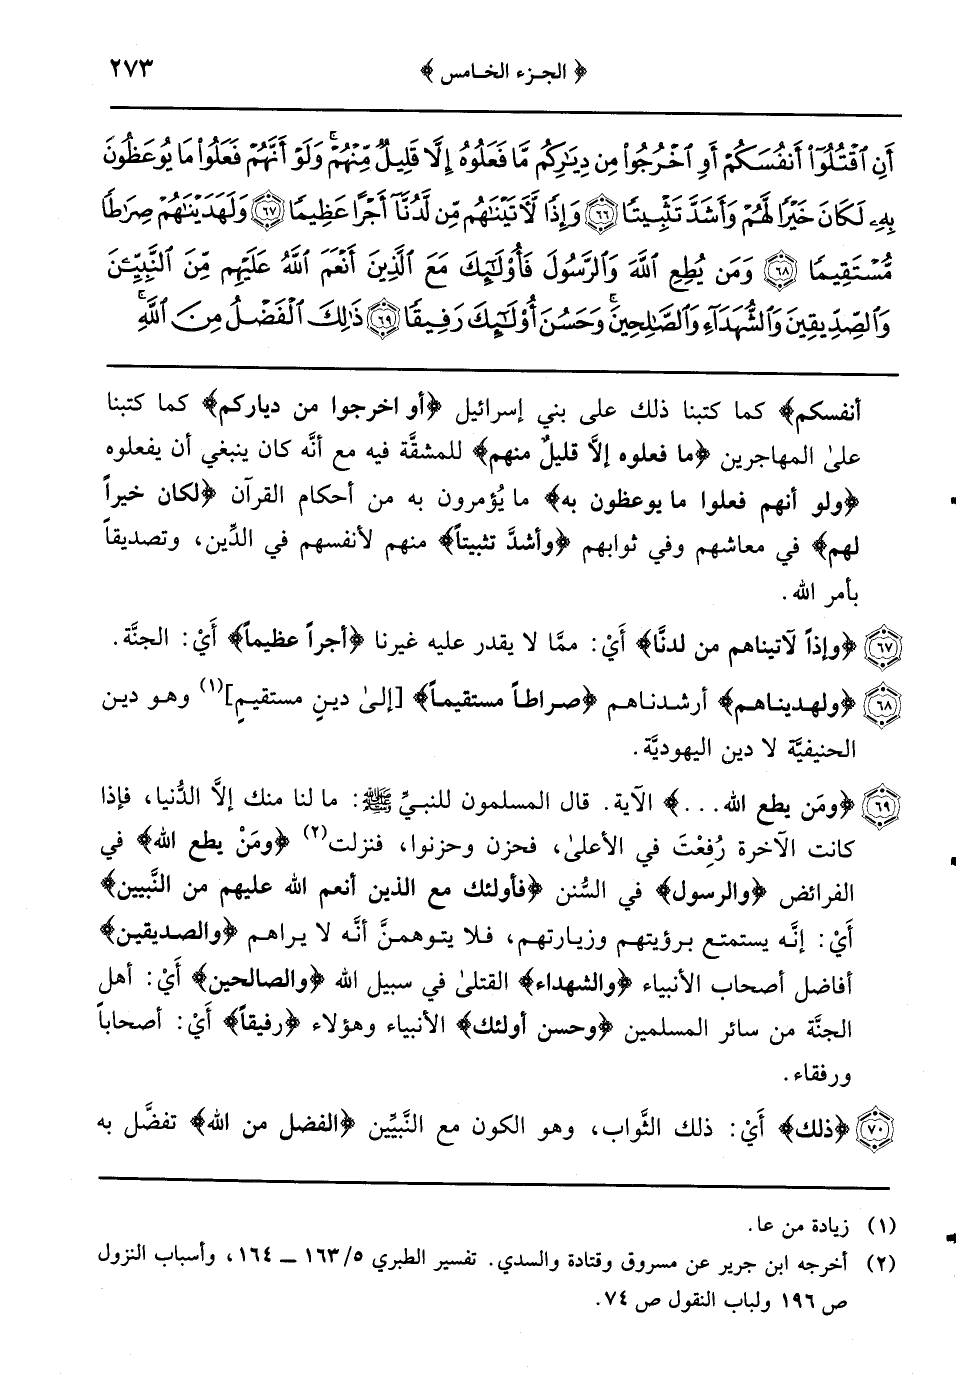 ﴿ الجزء الخامس ﴾ ٢٧٣
أَنِ ٱقْتُلُوٓا۟ أَنفُسَكُمْ أَوِ ٱخْرُجُوا۟ مِن دِيَـٰرِكُم مَّا فَعَلُوهُ إِلَّا قَلِيلٌ مِّنْهُمْ ۖ وَلَوْ أَنَّهُمْ فَعَلُوا۟ مَا يُوعَظُونَ
بِهِۦ لَكَانَ خَيْرًا لَّهُمْ وَأَشَدَّ تَثْبِيتًا ٦٦ وَإِذًا لَّـَٔاتَيْنَـٰهُم مِّن لَّدُنَّآ أَجْرًا عَظِيمًا ٦٧ وَلَهَدَيْنَـٰهُمْ صِرَٰطًا
مُّسْتَقِيمًا ٦٨ وَمَن يُطِعِ ٱللَّهَ وَٱلرَّسُولَ فَأُو۟لَـٰٓئِكَ مَعَ ٱلَّذِينَ أَنْعَمَ ٱللَّهُ عَلَيْهِم مِّنَ ٱلنَّبِيِّـۧنَ
وَٱلصِّدِّيقِينَ وَٱلشُّهَدَآءِ وَٱلصَّـٰلِحِينَ ۚ وَحَسُنَ أُو۟لَـٰٓئِكَ رَفِيقًا ٦٩ ذَٰلِكَ ٱلْفَضْلُ مِنَ ٱللَّهِ ۚ
أنفسكم﴾ كما كتبنا ذلك على بني إسرائيل ﴿أو اخرجوا من دياركم﴾ كما كتبنا
علىٰ المهاجرين ﴿ما فعلوه إلاَّ قليلٌ منهم﴾ للمشقَّة فيه مع أنَّه كان ينبغي أن يفعلوه
﴿ولو أنهم فعلوا ما يوعظون به﴾ ما يُؤمرون به من أحكام القرآن ﴿لكان خيراً
لهم﴾ في معاشهم وفي ثوابهم ﴿وأشدَّ تثبيتاً﴾ منهم لأنفسهم في الدِّين، وتصديقاً
بأمر الله.
٦٧ ﴿وإذاً لآتيناهم من لدنَّا﴾ أَيْ: ممَّا لا يقدر عليه غيرنا ﴿أجراً عظيماً﴾ أَيْ: الجنَّة.
٦٨ ﴿ولهديناهم﴾ أرشدناهم ﴿صراطاً مستقيماً﴾ [إلىٰ دينٍ مستقيمٍ](١) وهو دين
الحنيفيَّة لا دين اليهوديَّة.
٦٩ ﴿ومَن يطع الله...﴾ الآية. قال المسلمون للنبيِّ ﷺ: ما لنا منك إلاَّ الدُّنيا، فإذا
كانت الآخرة رُفِعْتَ في الأعلىٰ، فحزن وحزنوا، فنزلت(٢) ﴿ومَنْ يطع الله﴾ في
الفرائض ﴿والرسول﴾ في السُّنن ﴿فأولئك مع الذين أنعم الله عليهم من النَّبيين﴾
أَيْ: إنَّه يستمتع برؤيتهم وزيارتهم، فلا يتوهمنَّ أنَّه لا يراهم ﴿والصديقين﴾
أفاضل أصحاب الأنبياء ﴿والشهداء﴾ القتلىٰ في سبيل الله ﴿والصالحين﴾ أَيْ: أهل
الجنَّة من سائر المسلمين ﴿وحسن أولئك﴾ الأنبياء وهؤلاء ﴿رفيقاً﴾ أَيْ: أصحاباً
ورفقاء.
٧٠ ﴿ذلك﴾ أَيْ: ذلك الثَّواب، وهو الكون مع النَّبيِّين ﴿الفضل من الله﴾ تفضَّل به
(١) زيادة من عا.
(٢) أخرجه ابن جرير عن مسروق وقتادة والسدي. تفسير الطبري ٥/ ١٦٣ ــ ١٦٤، وأسباب النزول
ص ١٩٦ ولباب النقول ص ٧٤.